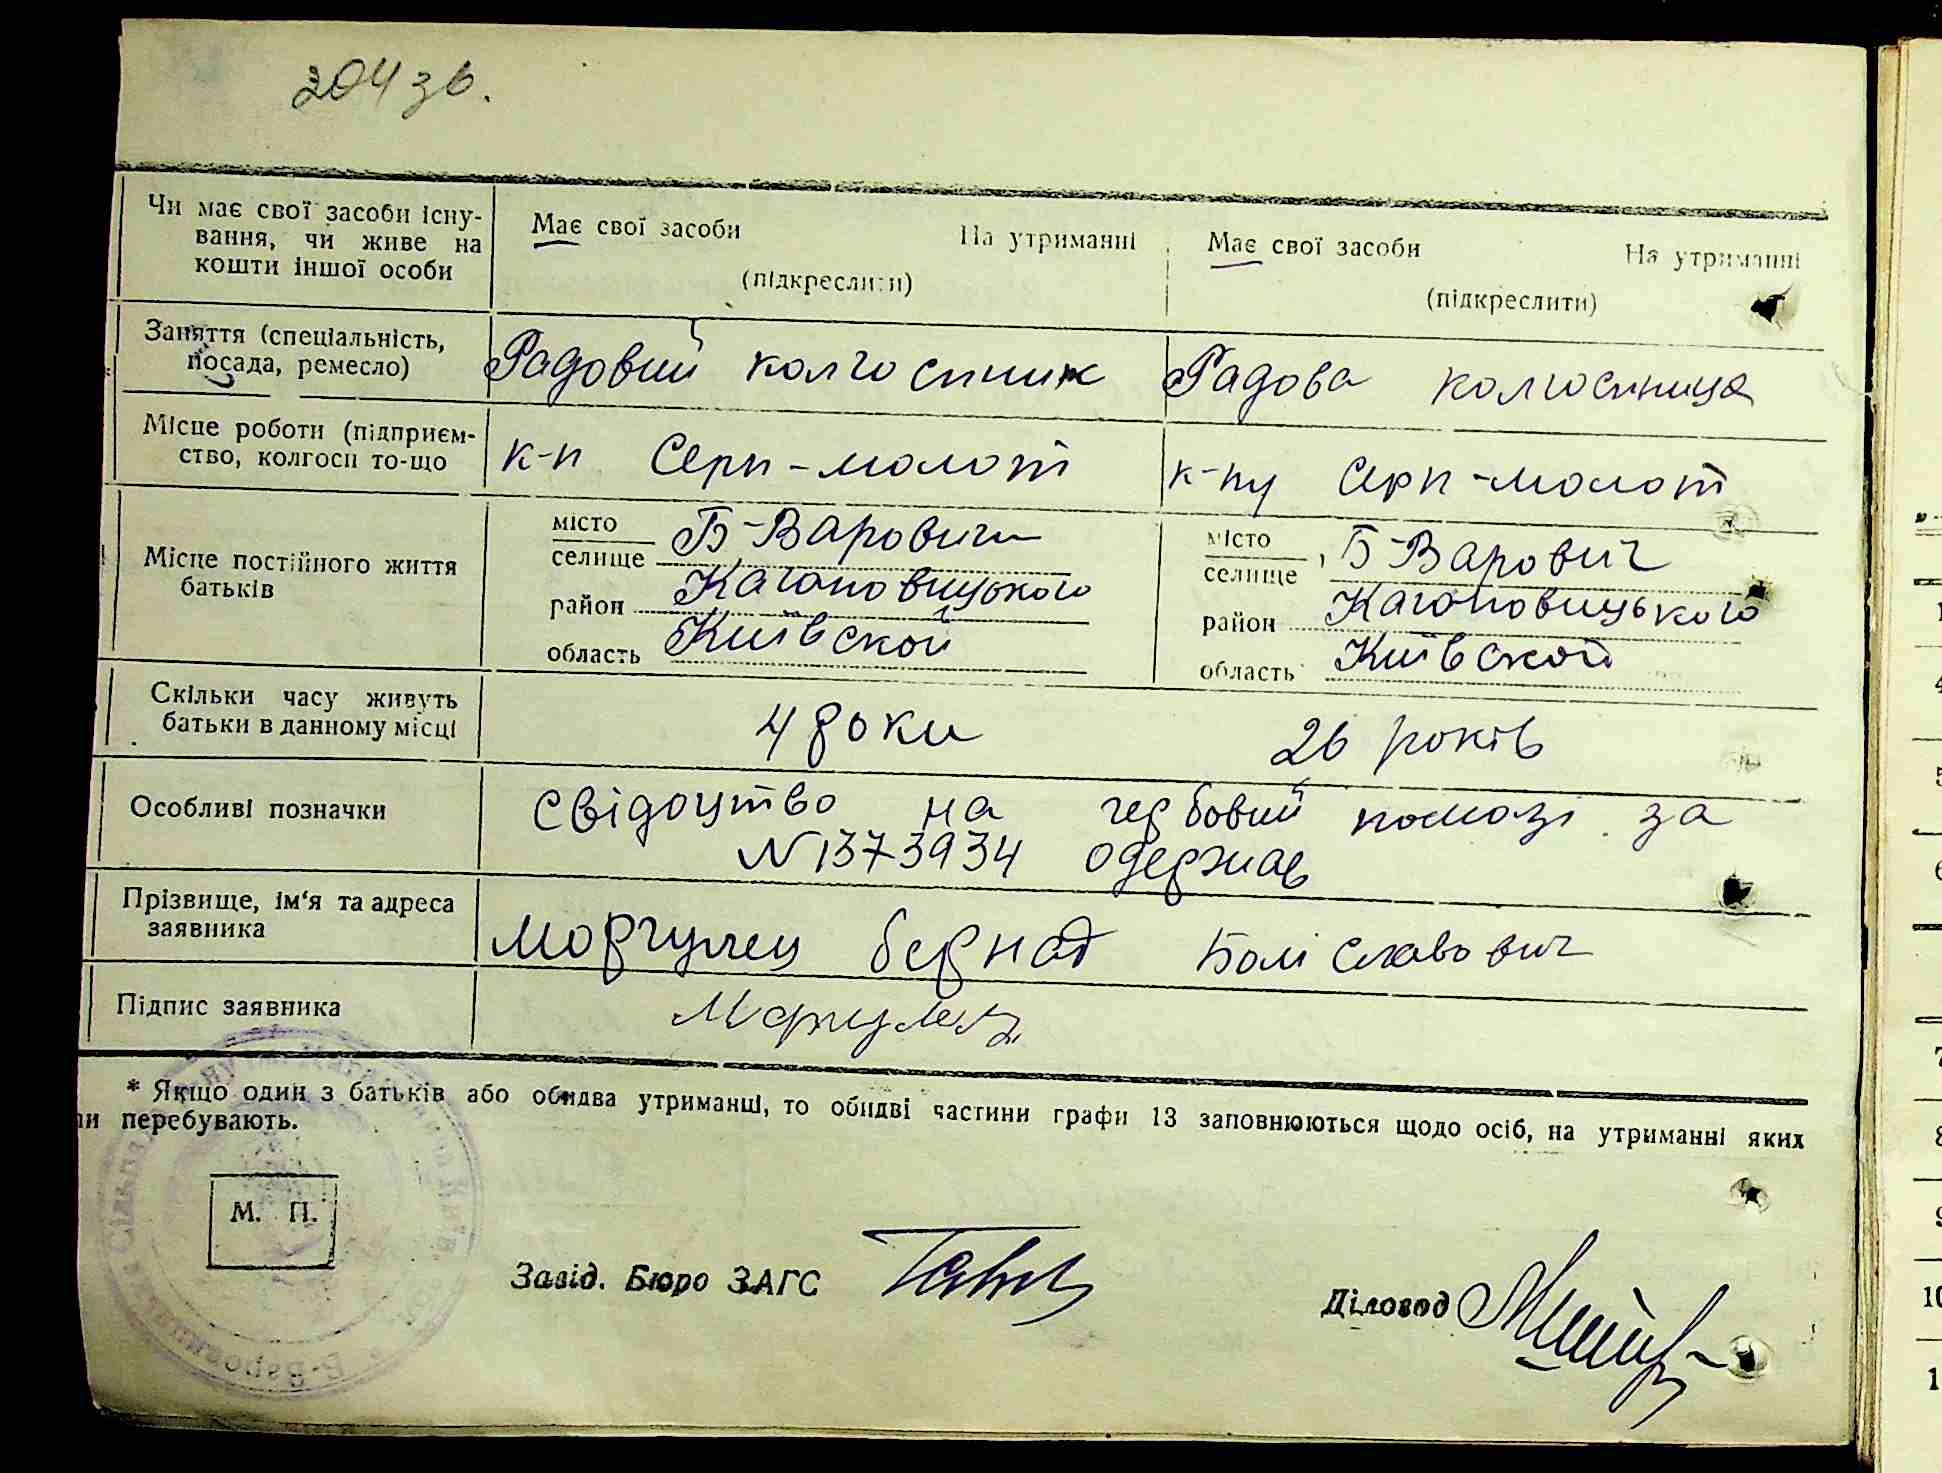 204 зв.
Чи має свої засоби існу-
вання, чи живе на
кошти іншої особи
Має свої засоби На утриманні
(підкреслити)
Має свої засоби На утриманні
(підкреслити)
Заняття (спеціальність,
посада, ремесло)
Радовий колгоспник
Радова колгоспниця
Місце роботи (підприєм-
ство, колгосп то-що
к-п Серп-молот
к-пу Серп-молот
Місце постійного життя
батьків
місто
селище Б-Варовичи
район Кагановицького
область Київской
місто
селище Б-Варович
район Кагановицького
область Київской
Скільки часу живуть
батьки в данному місці
4 роки
26 років
Особливі позначки
свідоцтво на гербовий помазі за
N1373934 одержав
Прізвище, ім'я та адреса
заявника
Моргулец бернад Болі славович
Підпис заявника
Моргулец
* Якщо один з батьків або обидва утриманці, то обидві частини графи 13 заповнюються щодо осіб, на утриманні яких
ни перебувають.
М. П.
Завід. Бюро ЗАГС
Діловод